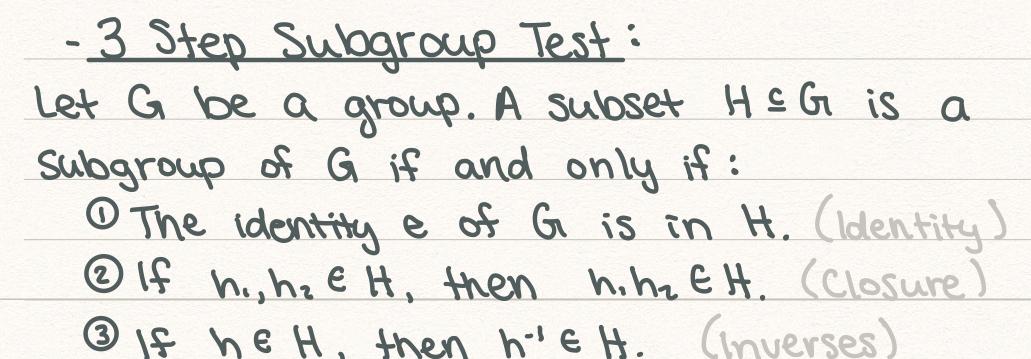 - 3 Step Subgroup Test:
Let G be a group. A subset H ⊆ G is a
subgroup of G if and only if:
① The identity e of G is in H. (Identity)
② If h₁, h₂ ∈ H, then h₁h₂ ∈ H. (Closure)
③ If h ∈ H, then h⁻¹ ∈ H. (inverses)